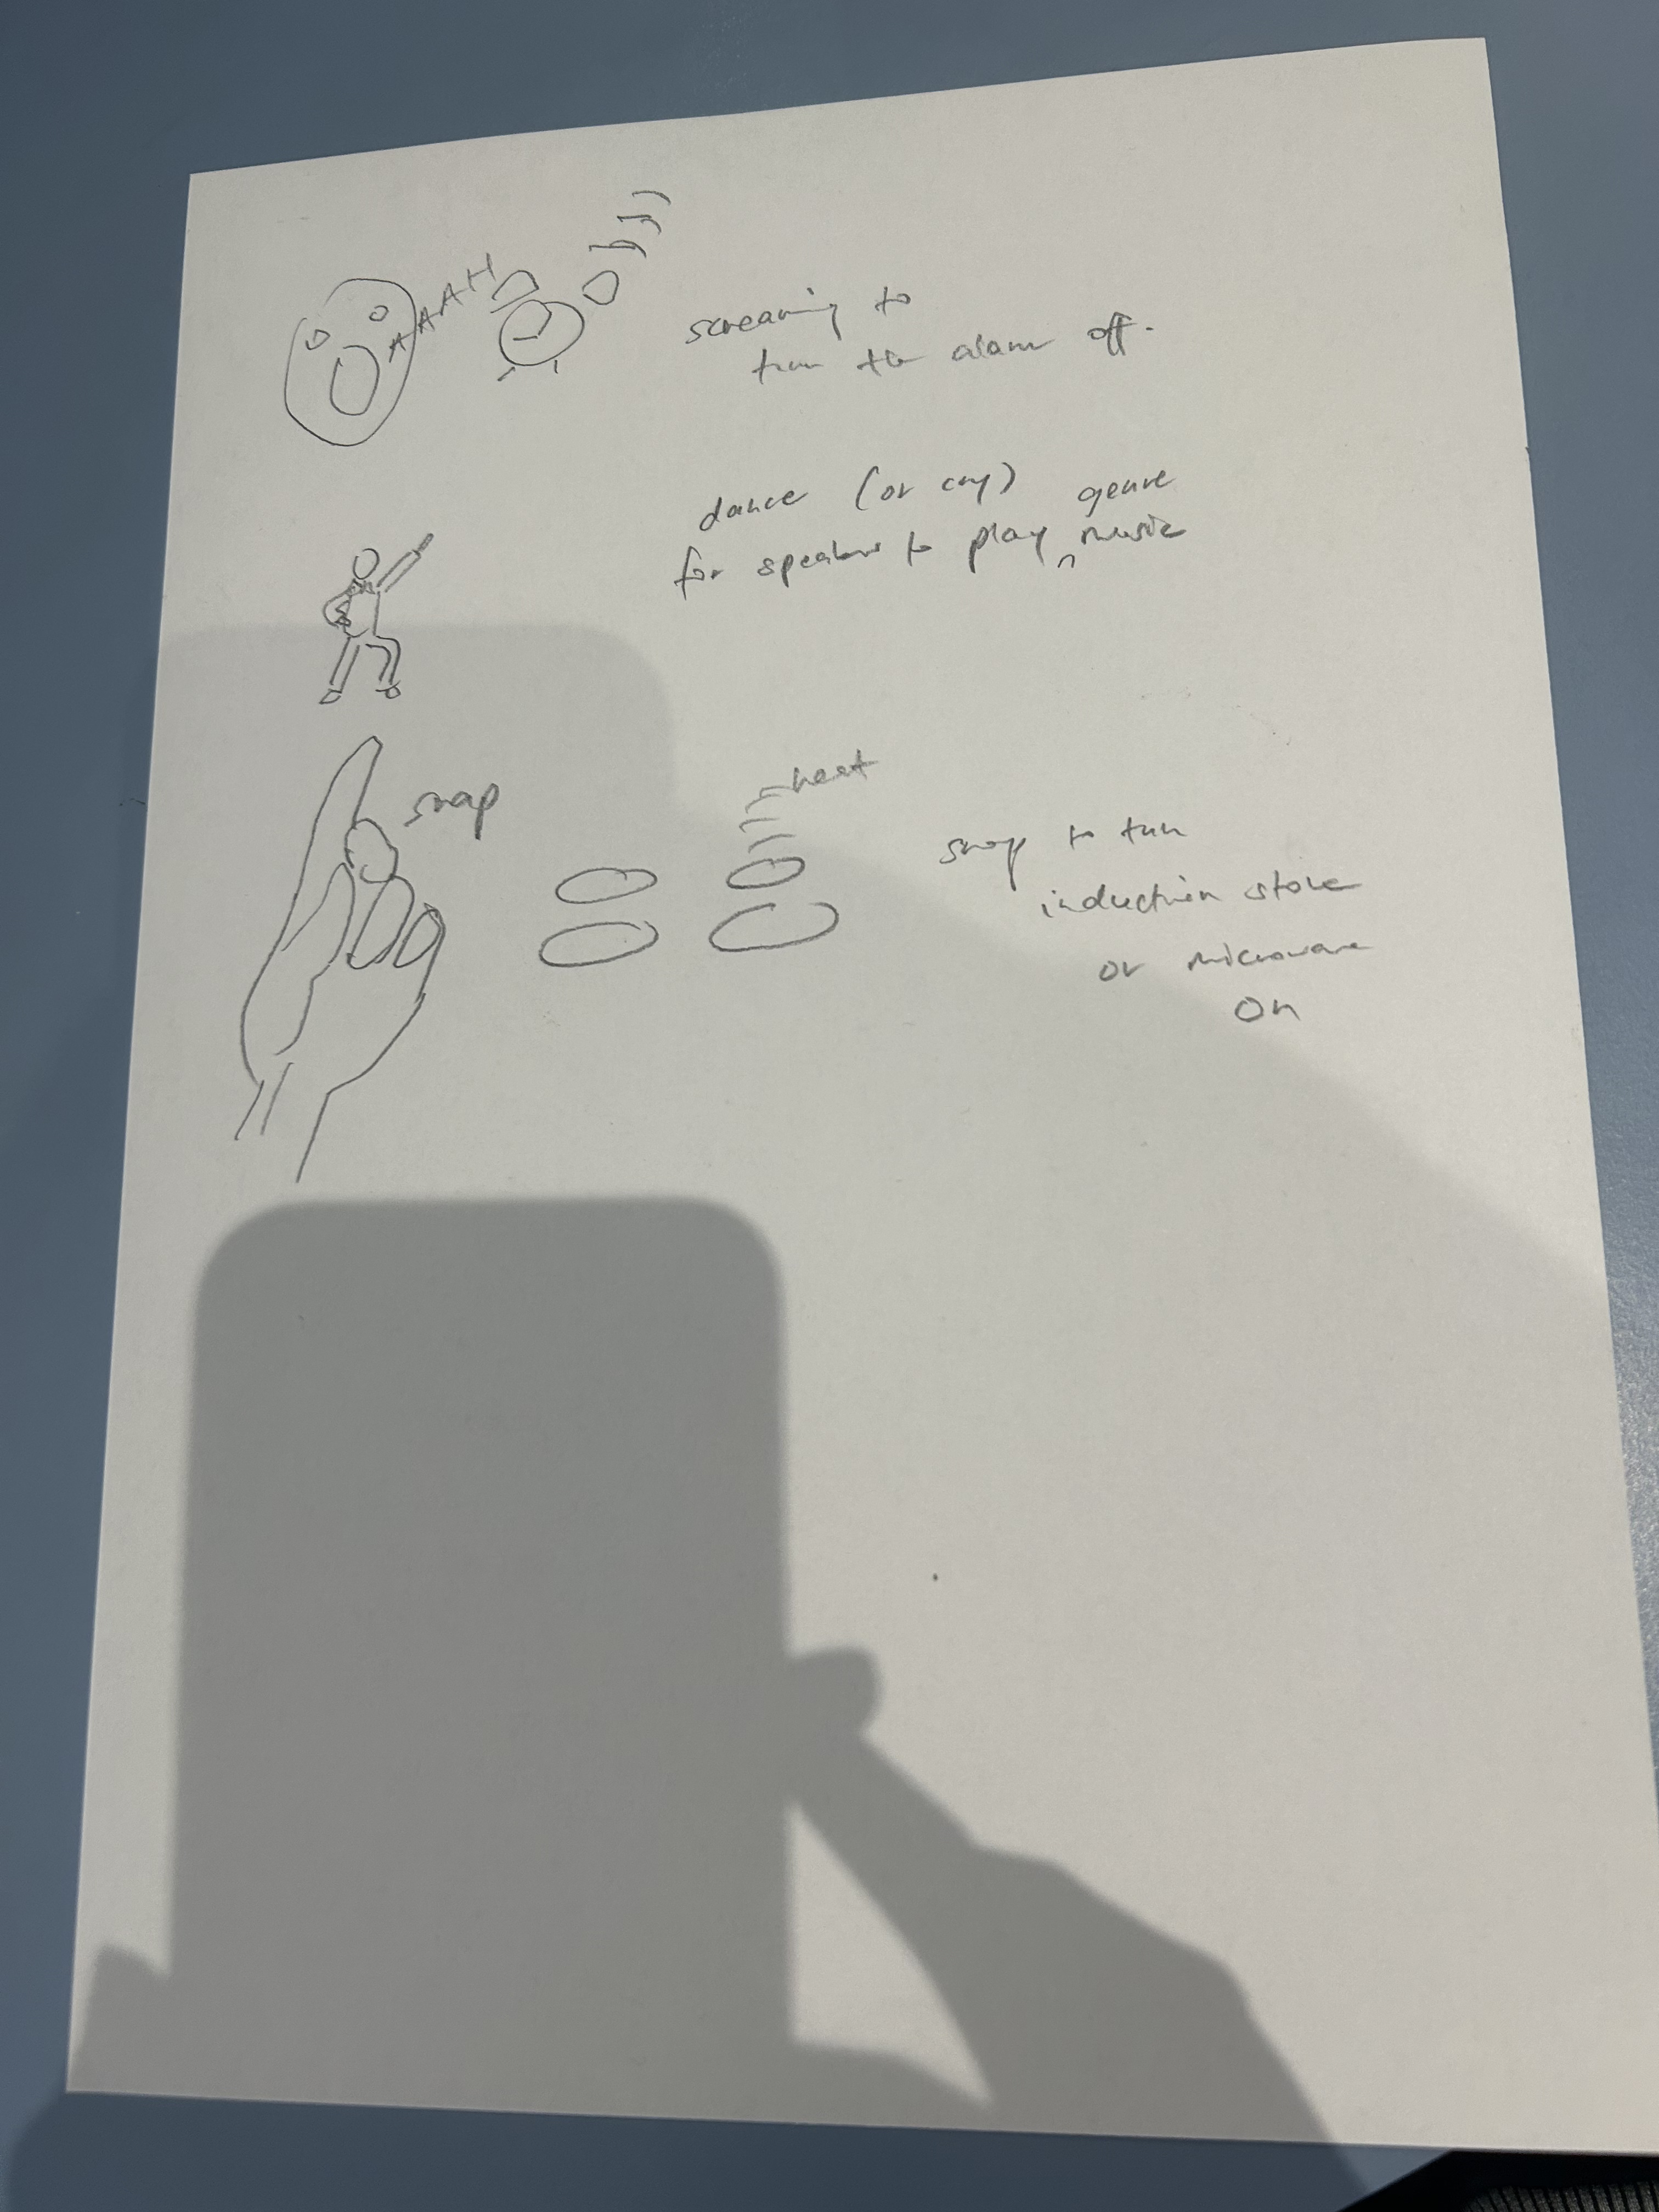 AAAAH
screaming to
turn the alarm off.
dance (or cry) genre
for speaker to play music
snap
heat
snap to turn
induction stove
or microwave
on